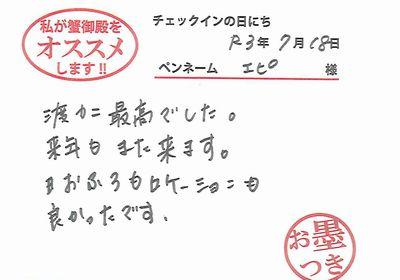 私が蟹御殿を
オススメ
します!!
チェックインの日にち
R3年7月18日
ペンネーム エピ 様
渡カニ最高でした。
来年もまた来ます。
おふろもロケーションも
良かったです。
お墨
つき